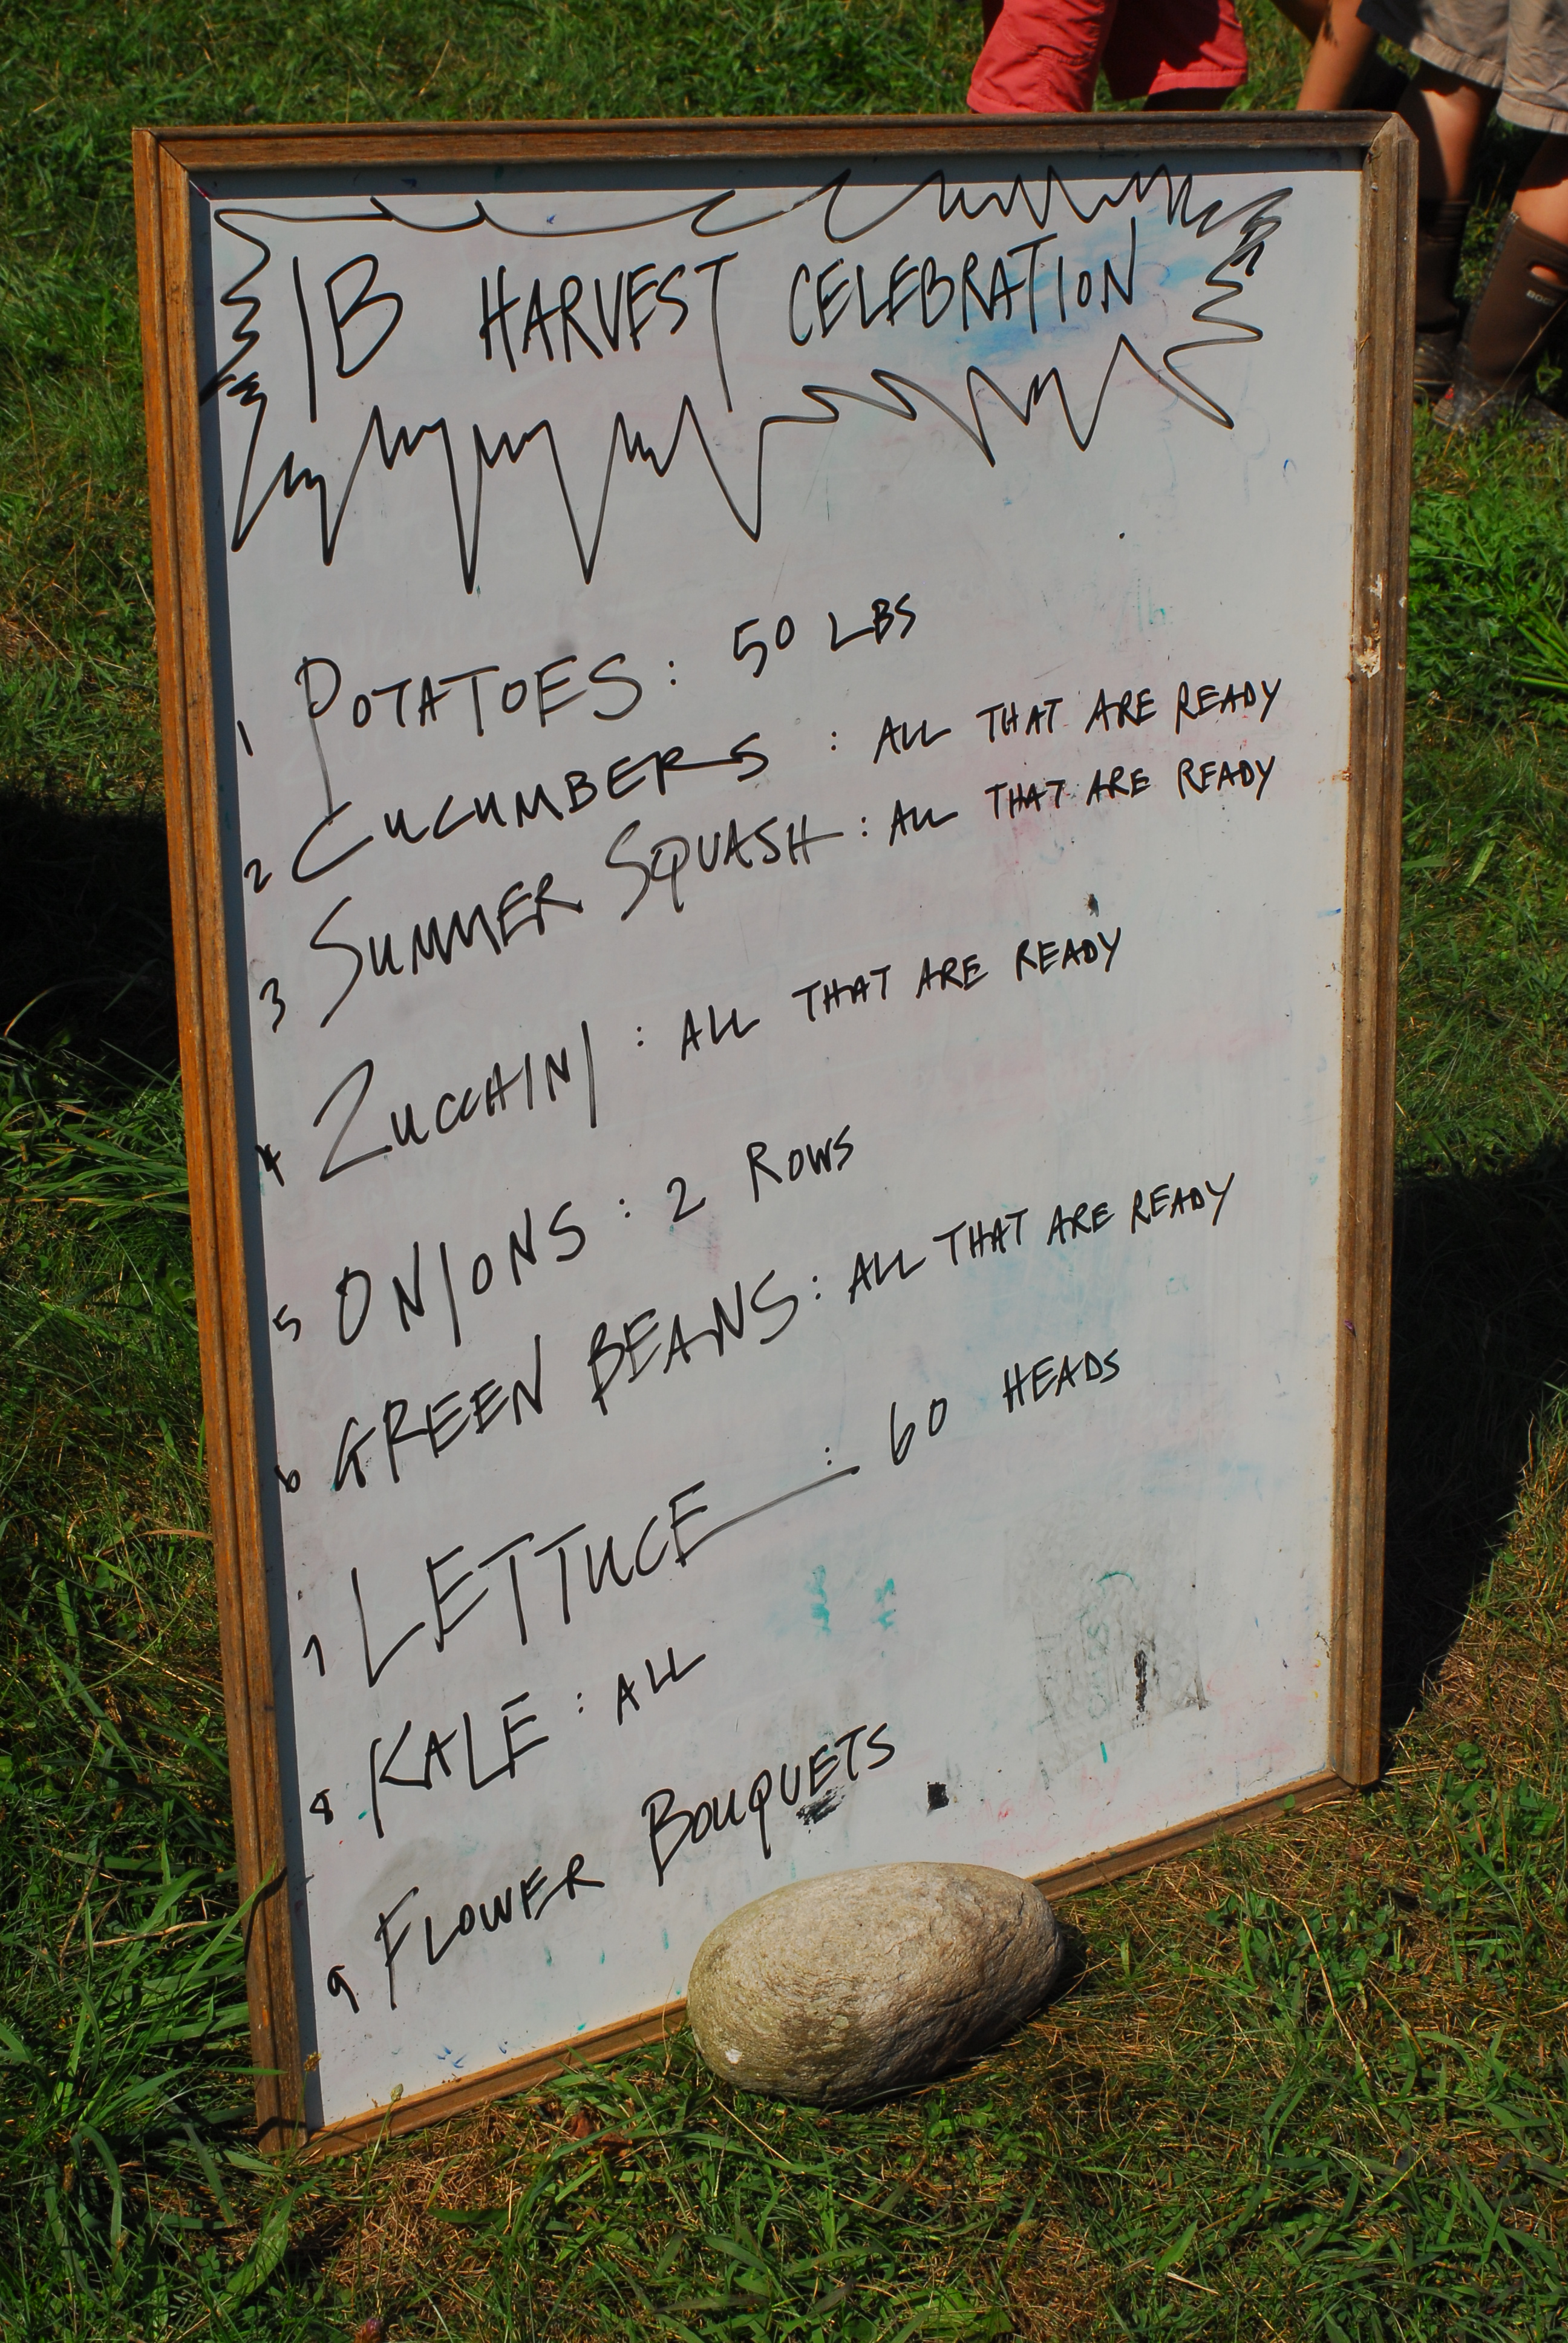 1B HARVEST CELEBRATION
1 POTATOES: 50 LBS
2 CUCUMBERS : ALL THAT ARE READY
3 SUMMER SQUASH: ALL THAT ARE READY
4 ZUCCHINI : ALL THAT ARE READY
5 ONIONS: 2 ROWS
6 GREEN BEANS: ALL THAT ARE READY
7 LETTUCE : 60 HEADS
8 KALE: ALL
9 FLOWER BOUQUETS